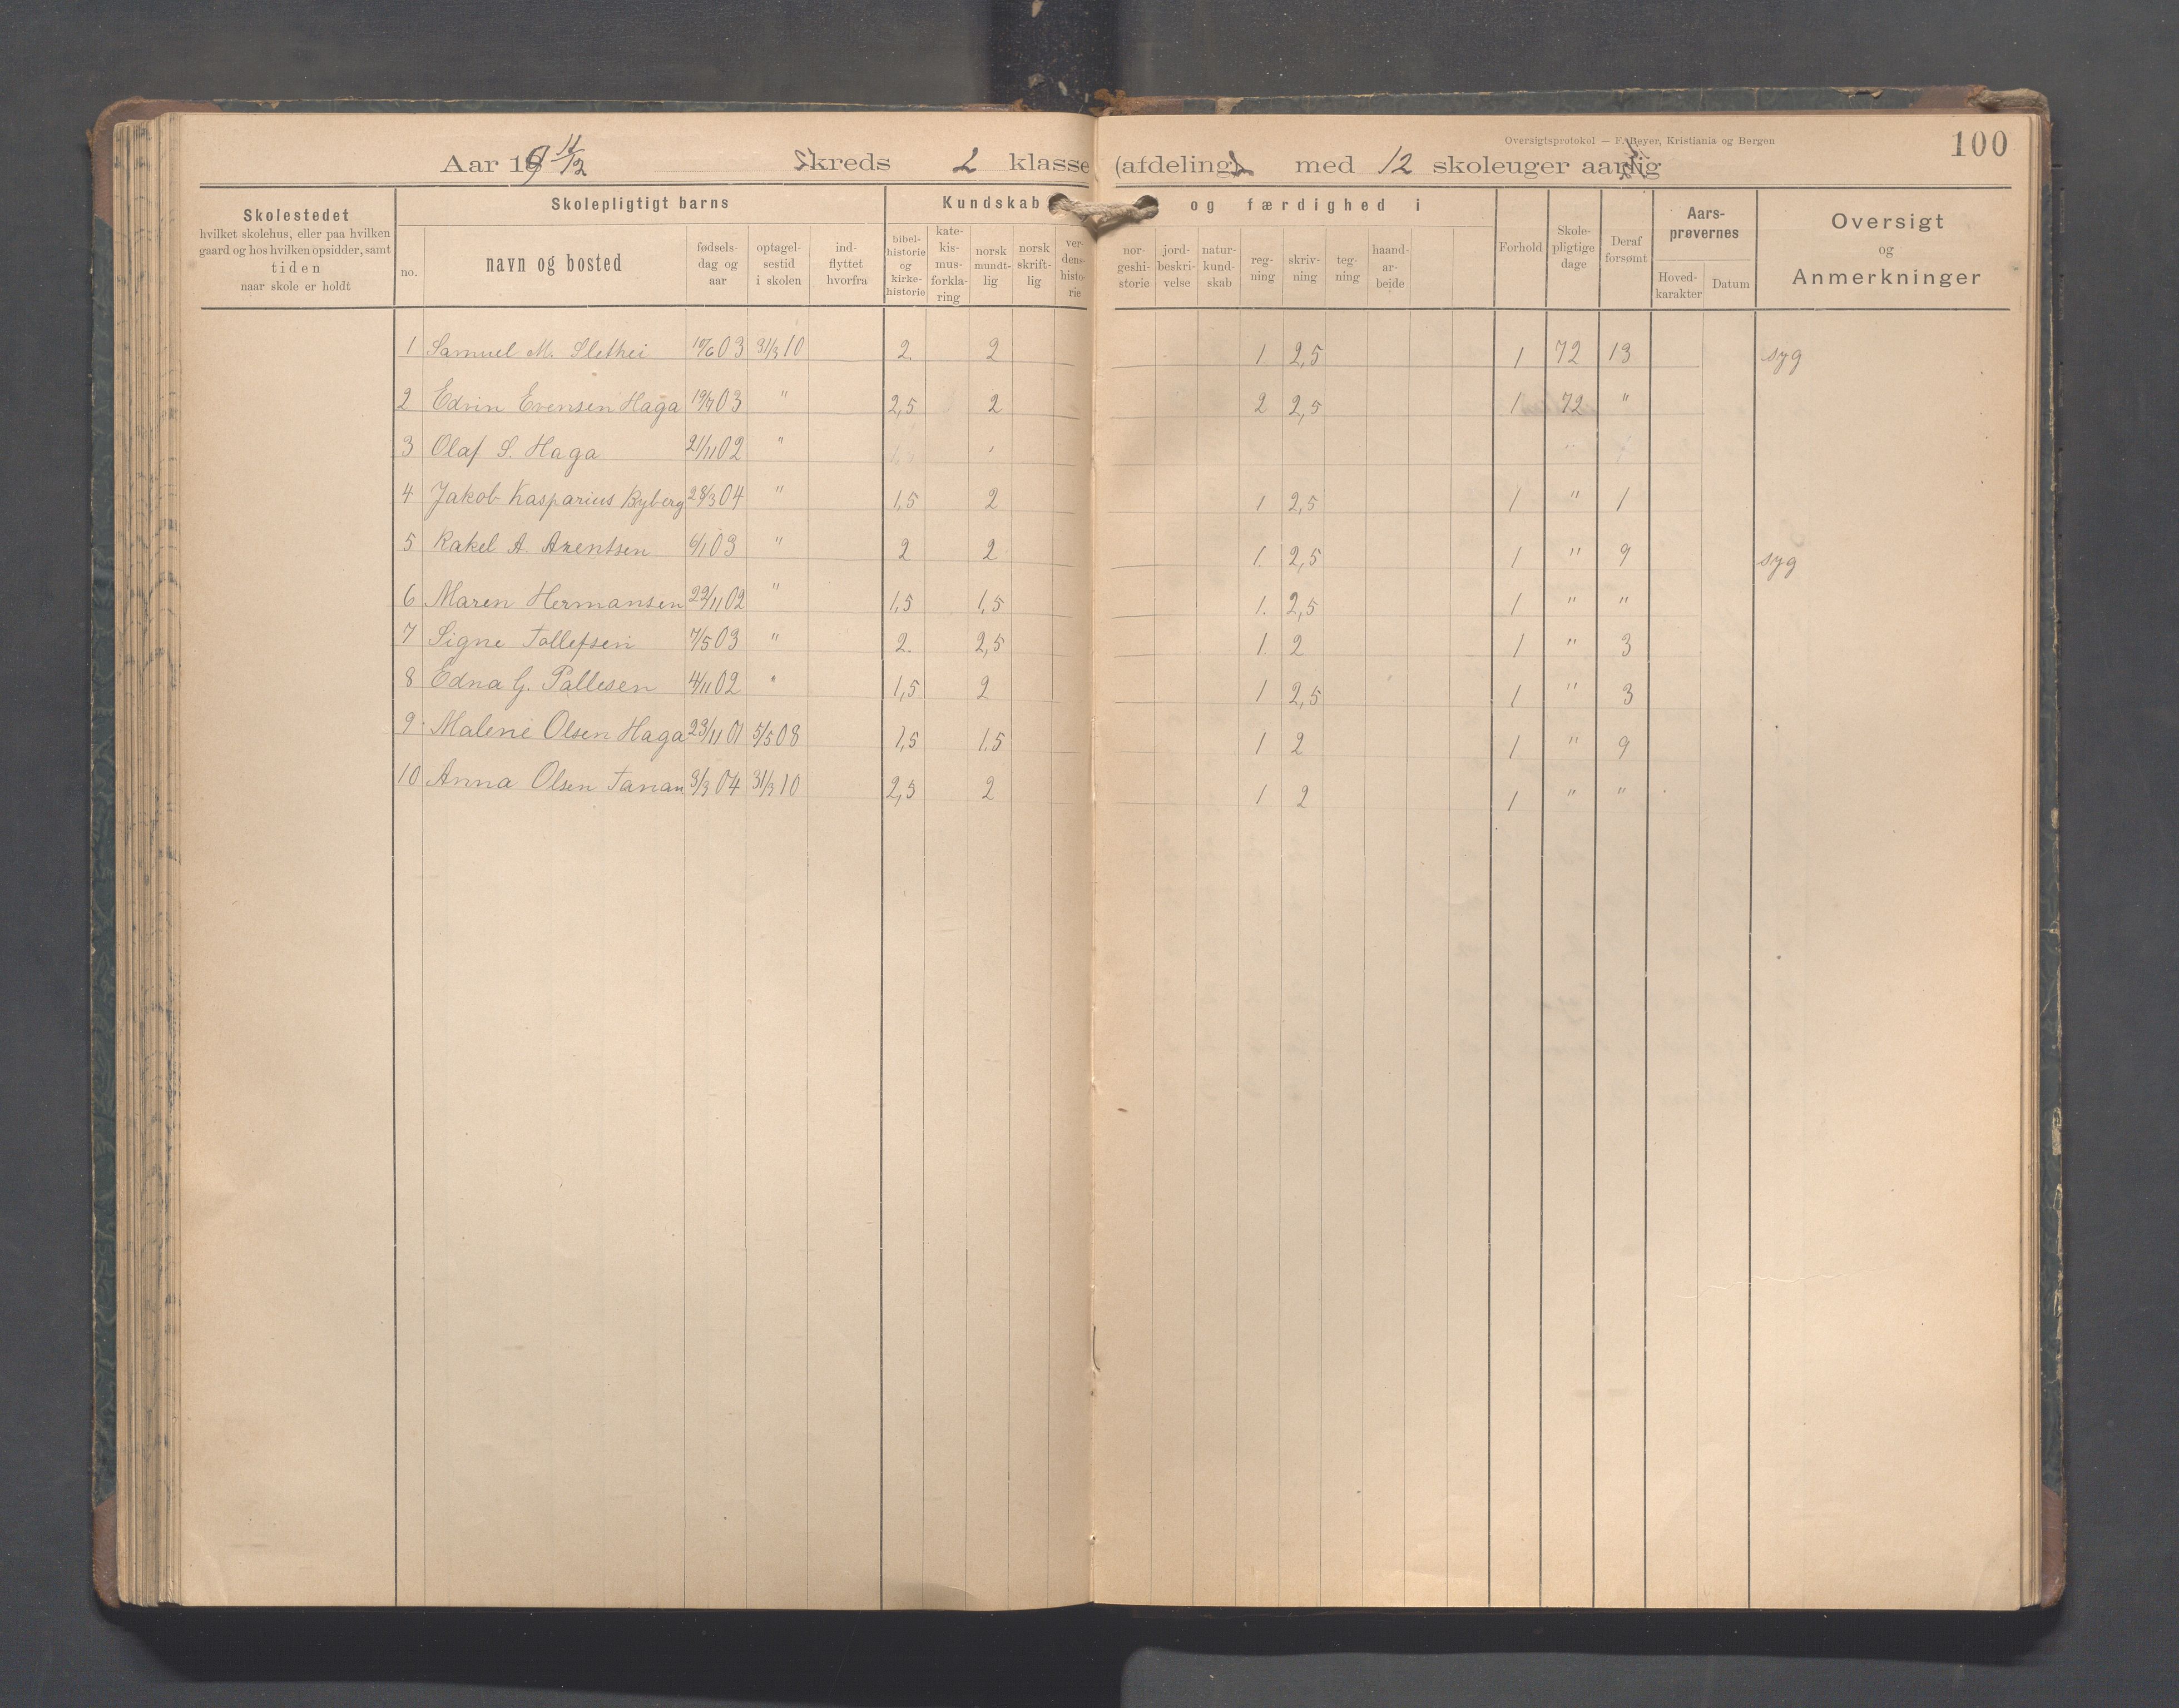 Oversigtsprotokol — F. Beyer, Kristiania og Bergen
100
Aar 19 11/12 Skreds 2 klasse (afdeling) med 12 skoleuger aarlig
Skolestedet
hvilket skolehus, eller paa hvilken
gaard og hos hvilken opsidder, samt
tiden
naar skole er holdt
Skolepligtigt barns
no.
navn og bosted
fødsels-
dag og
aar
optagel-
sestid
i skolen
ind-
flyttet
hvorfra
Kundskab og færdighed i
bibel-
historie
og
kirke-
historie
kate-
kis-
mus-
forkla-
ring
norsk
mundt-
lig
norsk
skrift-
lig
ver-
dens-
histo-
rie
nor-
geshi-
storie
jord-
beskri-
velse
natur-
kund-
skab
reg-
ning
skriv-
ning
teg-
ning
haand-
ar-
beide
Forhold
Skole-
pligtige
dage
Deraf
forsømt
Aars-
prøvernes
Hoved-
karakter
Datum
Oversigt
og
Anmerkninger
1 Samuel M. Slethei 10/6 03 31/3 10 2. 2 1. 2,5 1 72 13 syg
2 Edvin Evensen Haga 19/7 03 " 2,5 2 2 2,5 1 72 "
3 Olaf S. Haga 21/11 02 "
4 Jakob Kasparius Ryberg 28/3 04 " 1,5 2 1 2,5 1 " 1
5 Rakel A. Arentsen 6/1 03 " 2 2 1. 2,5 1 " 9 syg
6 Maren Hermansen 22/11 02 " 1,5 1,5 1. 2,5 1 " "
7 Signe Tollefsen 7/5 03 " 2. 2,5 1. 2 1 " 3
8 Edna G. Pallesen 4/11 02 " 1,5 2 1 2,5 1 " 3
9 Malene Olsen Haga 23/11 01 5/5 08 1,5 1.5 1 2 1 " 9
10 Anna Olsen Tanan 3/3 04 31/3 10 2,5 2 1 2 1 " "